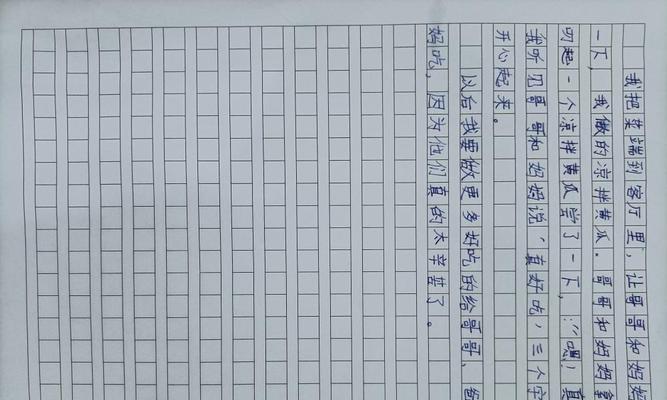 我把菜端到客厅里，让哥哥和妈妈
一下，我做的凉拌黄瓜。哥哥和妈妈拿
叨起一个凉拌黄瓜尝了一下，：“嗯！真
我听见哥哥和妈妈说，真好吃，三个字
开心起来。
以后我要做更多好吃的给哥哥、爸
好吃，因为他们真的太辛苦了。